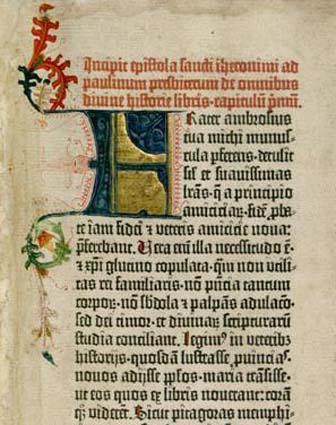 Incipit epistola sancti iheronimi ad
paulinum presbiterum de omnibus
divine historie libris· capitulū p̄mū.
Frater ambrosius
tua michi munus-
cula pferens· detulit
sil' et suavissimas
lrās· q̄ a principio
amiciciaꝝ· fidē pba-
te iam fidei et veteris amicicie nova:
pferebant. Vera em̄ illa necessitudo ē·
et xp̄i glutino copulata· qm̄ non utili-
tas rei familiaris· nō pn̄tia tantum
corpoꝝ· nō sbdola et palpās adulacō·
sed dei timor· et divinaꝝ scripturarū
studia conciliant. Legim⁹ in veteribꝫ
historijs· quosdā lustrasse puincias·
novos adijsse pplōs· maria trāsisse·
ut eos quos ex libris noverant: coram
qꝫ viderēt. Sicut pitagoras memphi-